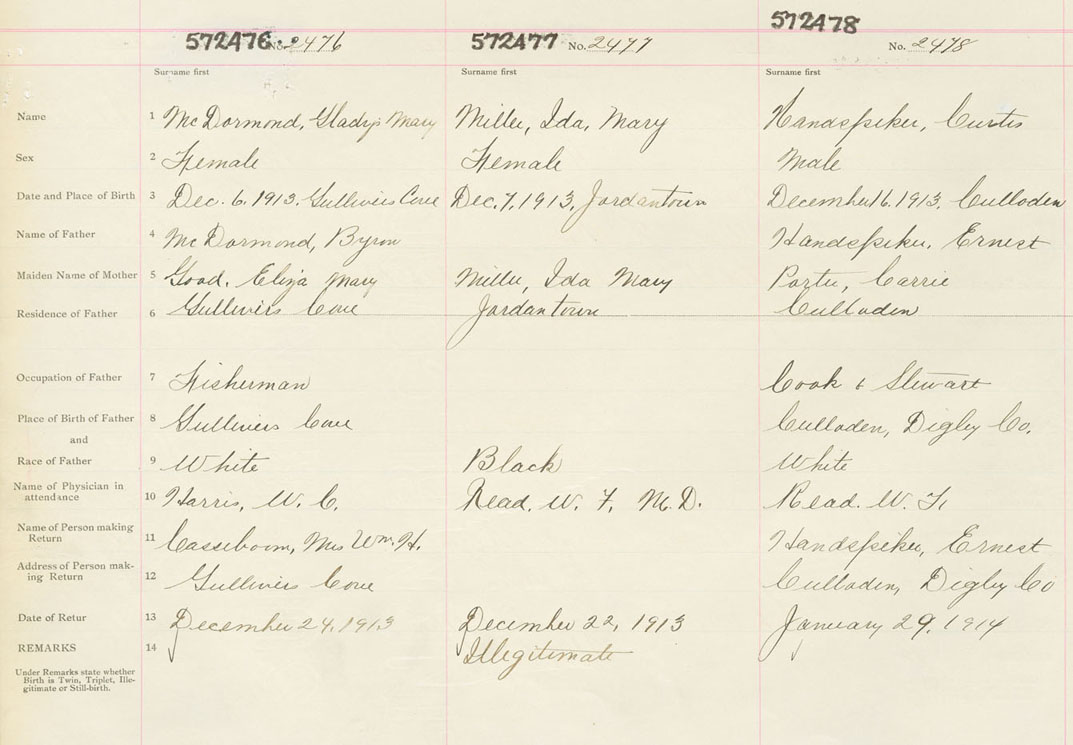 572476 No. 2476 572477 No. 2477 572478 No. 2478
Surname first Surname first Surname first
Name 1 McDormond, Gladys Mary Miller, Ida, Mary Handspiker, Curtis
Sex 2 Female Female Male
Date and Place of Birth 3 Dec. 6. 1913. Gullivers Cove Dec. 7, 1913, Jordantown December 16. 1913, Culloden
Name of Father 4 McDormond, Byron Handspiker, Ernest
Maiden Name of Mother 5 Good, Eliza Mary Miller, Ida Mary Porter, Carrie
Residence of Father 6 Gullivers Cove Jordantown Culloden
Occupation of Father 7 Fisherman Cook & Stewart
Place of Birth of Father 8 Gullivers Cove Culloden, Digby Co.
and
Race of Father 9 White Black White
Name of Physician in
attendance 10 Harris, W. C. Read. W. F. M.D. Read. W. F.
Name of Person making
Return 11 Casseboom, Mrs Wm. H. Handspiker, Ernest
Address of Person mak-
ing Return 12 Gullivers Cove Culloden, Digby Co
Date of Retur 13 December 24, 1913 December 22, 1913 January 29, 1914
REMARKS 14 Illegitimate
Under Remarks state whether
Birth is Twin, Triplet, Ille-
gitimate or Still-birth.